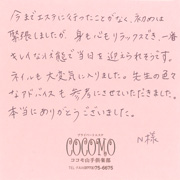 今までエステに行ったことがなく、初めは
緊張しましたが、身も心もリラックスでき、一番
キレイな状態で当日を迎えられそうです。
ネイルも大変気に入りました。先生の色々
なアドバイスも参考にさせていただきました。
本当にありがとうございました。
N様
COCOMO
ココモ山手倶楽部